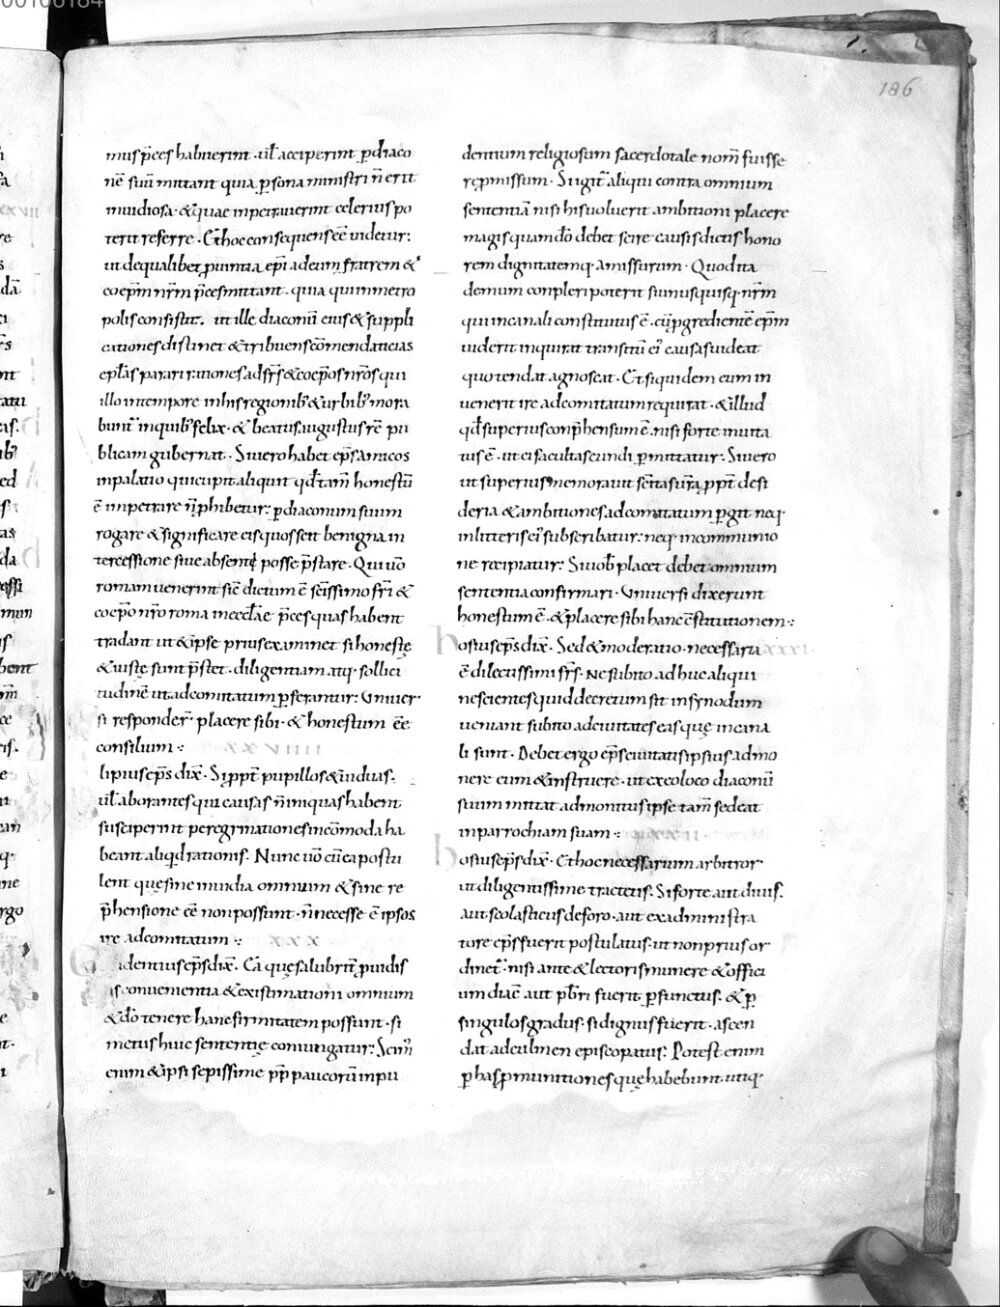 186
mus p̄ces habuerint · ul̄ acciperint ꝑ diaco
nē suū mittant quia ꝑsona ministri n̄ erit
inuidiosa · & quae inpetrauerint celerius po
terit referre · Et hoc consequens eē uidetur:
ut de qualibet ꝓuintia ep̄i ad eum fratrem &
coep̄m nr̄m p̄ces mittant · quia qui in metro
poli consistit · ut ille diaconū eius & suppli
cationes distinet & tribuens cōmendaticias
epl̄as pari ratione ad fr̄s & coep̄os nr̄os qui
illo in tempore in his regionib; & urbib; mora
bunt̄ in quib; felix · & beatus augustus rē pu
blicam gubernat · Si uero habet ep̄s amicos
in palatio qui cupit aliquit qd̄ tam̄ honestū
ē inpetrare n̄ ꝓhibetur: ꝑ diaconum suum
rogare & significare eis quos scit benigna in
tercessione siue absentę posse p̄stare · Qui uō
romam uenerint sic̄ dictum ē sc̄issimo fr̄i &
coep̄o nr̄o roma in ecclae p̄ces quas habent
tradant ut & ipse prius examinet si honestę
& iustę sunt p̄stet · diligentiam atq; sollici
tudinē ut ad comitatum ꝑferantur: Uniuer
si responder̄ placere sibi · & honestum eē
consilium :
XXVIIII
lipius ep̄s dix̄ · Si ppt̄ pupillos & uiduas ·
ul̄ laborantes qui causas n̄ iniquas habent
susciperint peregrinationes incōmoda ha
beant aliqd̄ rationis · Nunc uō cū ea postu
lent quę sine inuidia omnium & sine re
p̄hensione eē non possunt · n̄ necesse ē ipsos
ire ad comitatum :
XXX
identius ep̄s dix̄ · Ea quę salubrit̄ ꝓuidis
tis conuenientia & existimationi omnium
& dō tenere hanc firmitatem possunt · si
metus huic sententię coniungatur: Scim̄
enim & ipsi sepissime ꝓp̄ paucorū inpu
dentium religiosum sacerdotale nom̄ fuisse
repmissum · Si igit̄ aliqui contra omnium
sententiā nisi his uoluerit ambitioni placere
magis quam dō debet scire causis dictis hono
rem dignitatemq; amissurum · Quod ita
demum conpleri poterit si unusquisq; nr̄m
qui in canali constitutus ē · cū ꝓgredientē ep̄m
uiderit inquirat transitū ei causas uideat
quo tendat agnoscat · Et siquidem eum in
uenerit ire ad comitatum requirat · & illud
qd̄ superius conp̄hensum ē · nisi forte inuita
tus ē · ut ei facultas eundi ꝑmittatur: Si uero
ut superius memorauit ppt̄ desi
deria & ambitiones ad comitatum ꝑgit neq;
in litteris ei subscribatur: neq; in communio
ne recipiatur: Si uob̄ placet debet omnium
sententia confirmari · Uniuersi dixerunt
honestum ē · & placere sibi hanc cc̄stitutionem :
hosius ep̄s dix̄ · Sed & moderatio · necessaria XXXI
ē dilectissimi fr̄s · Ne subito adhuc aliqui
nescientes quid decretum sit in synodum
ueniant subito ad ciuitates eas quę in cana
li sunt · Debet ergo ep̄s ciuitatis ipsius admo
nere eum & instruere · ut ex eo loco diaconū
suum mittat admonitus ipse tam̄ sedeat
in parrochiam suam :
hosius ep̄s dix̄ · Et hoc necessarium arbitror
ut diligentissime tractetis · Si forte aut diues ·
aut scolasticus de foro · aut ex administra
tore ep̄s fuerit postulatus · ut non prius or
dinet̄ · nisi ante & lectoris munere & offici
um diac̄ aut pb̄ri fuerit ꝑfunctus · & ꝑ
singulos gradus · si dignus fuerit · ascen
dat ad culmen episcopatus: Potest enim
ꝑ has ꝓmuntiones quę habebunt · utiq;